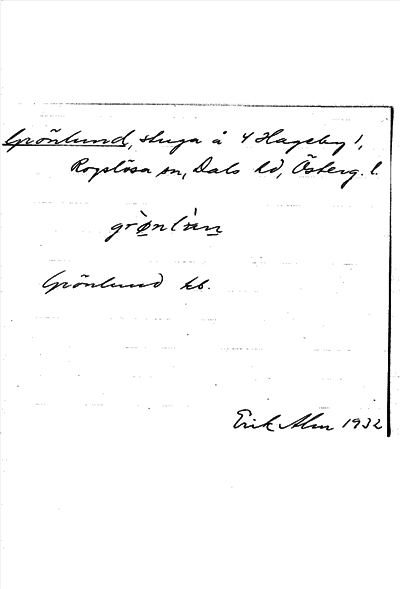 Grönlund, stuga å 4 Hageby 1,
Rogslösa sn, Dals hd, Österg. l.
Grönlund kb.
Erik Alm 1932